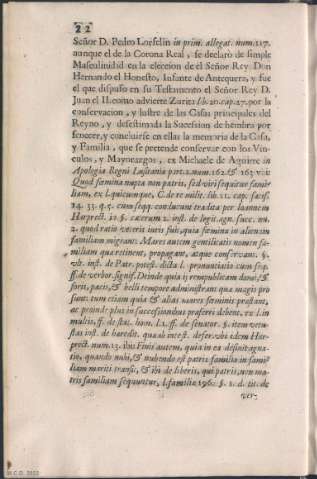 22
Señor D. Pedro in prim. allegat. num. 117.
aunque el de la Corona Real, se declarò de simple
Masculinidad en la eleccion de el Señor Rey Don
Hernando el Honesto, Infante de Antequera, y fue
el que dispuso en su Testamento el Señor Rey D.
Juan el II. como advierte Zurita lib. 20. cap. 27. por la
conservacion, y lustre de las Casas principales del
Reyno, y desestimada la Sucession de hembra por
fenecer, y concluirse en ellas la memoria de la Casa,
y Familia, que se pretende conservar con los Vin-
culos, y Mayorazgos, ex Michaele de Aguirre in
Apologia Regni Lusitania part. 2. num. 162. & 163. ibi:
Quod fœmina nupta non patris, sed viri sequitur fami-
liam, ex l. quicumque, C. de re milit. lib. 12. cap.
14. 33. q. 5. cum seqq. con lucunt tradita per Ioannem
Harprect. in §. cæterum 2. inst. de legit. agn. succ. nu.
2. quod ratio veteris iuris fuit, quia fœmina in alienam
familiam migrant: Mares autem gentilitatis nomen fa-
miliam qua retinent, propagant, atque conservant. §.
vlt. inst. de Patr. potest. dicta l. pronunciatio cum seq.
ff. de verbor. signif. Deinde quia ij rempublicam domi, &
foris, pacis, & belli tempore administrant qua magis pro
sunt: tum etiam quia & alias mares fœminis præstant,
ac proinde plus in successionibus præferri debent, vt l. in
multis, ff. de stat. hom. l. 1. ff. de Senator. §. item vetu-
stas inst. de hæredit. quæ ab intest. defer. vbi idem Har-
prect. num. 13. ibi: Finis autem, quia in ea desinit agna-
tio, quando nubit, & nubendo est patris familia in fami-
liam mariti transit, & ibi de liberis, qui patris, non ma-
tris familiam sequuntur, l. familia 196. §. 1. d. tit. de
ver-